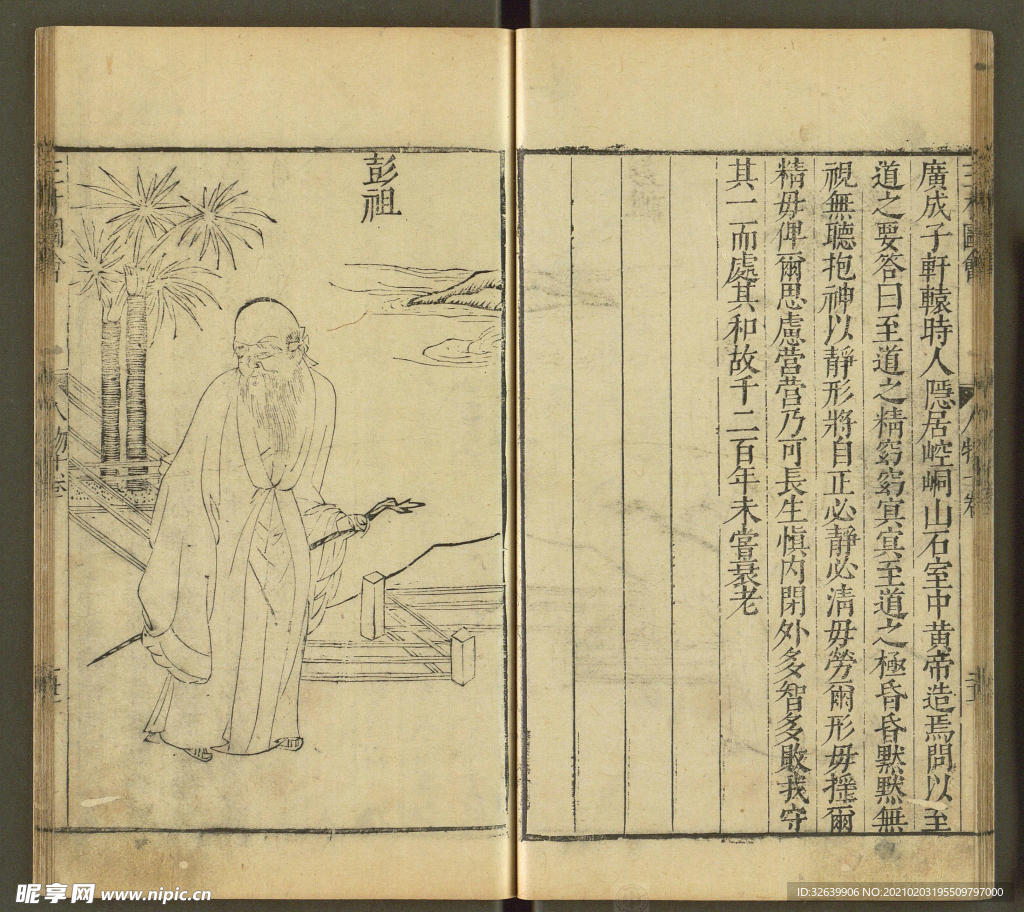 三才圖會
人物十卷
廣成子軒轅時人隱居崆峒山石室中黃帝造焉問以至
道之要答曰至道之精窈窈冥冥至道之極昏昏默默無
視無聽抱神以靜形將自正必靜必清毋勞爾形毋搖爾
精毋俾爾思慮營營乃可長生慎內閉外多智多敗我守
其一而處其和故千二百年未嘗衰老
彭祖
三才圖會
人物十卷
昵享网 www.nipic.cn
ID:32639906 NO:20210203195509797000